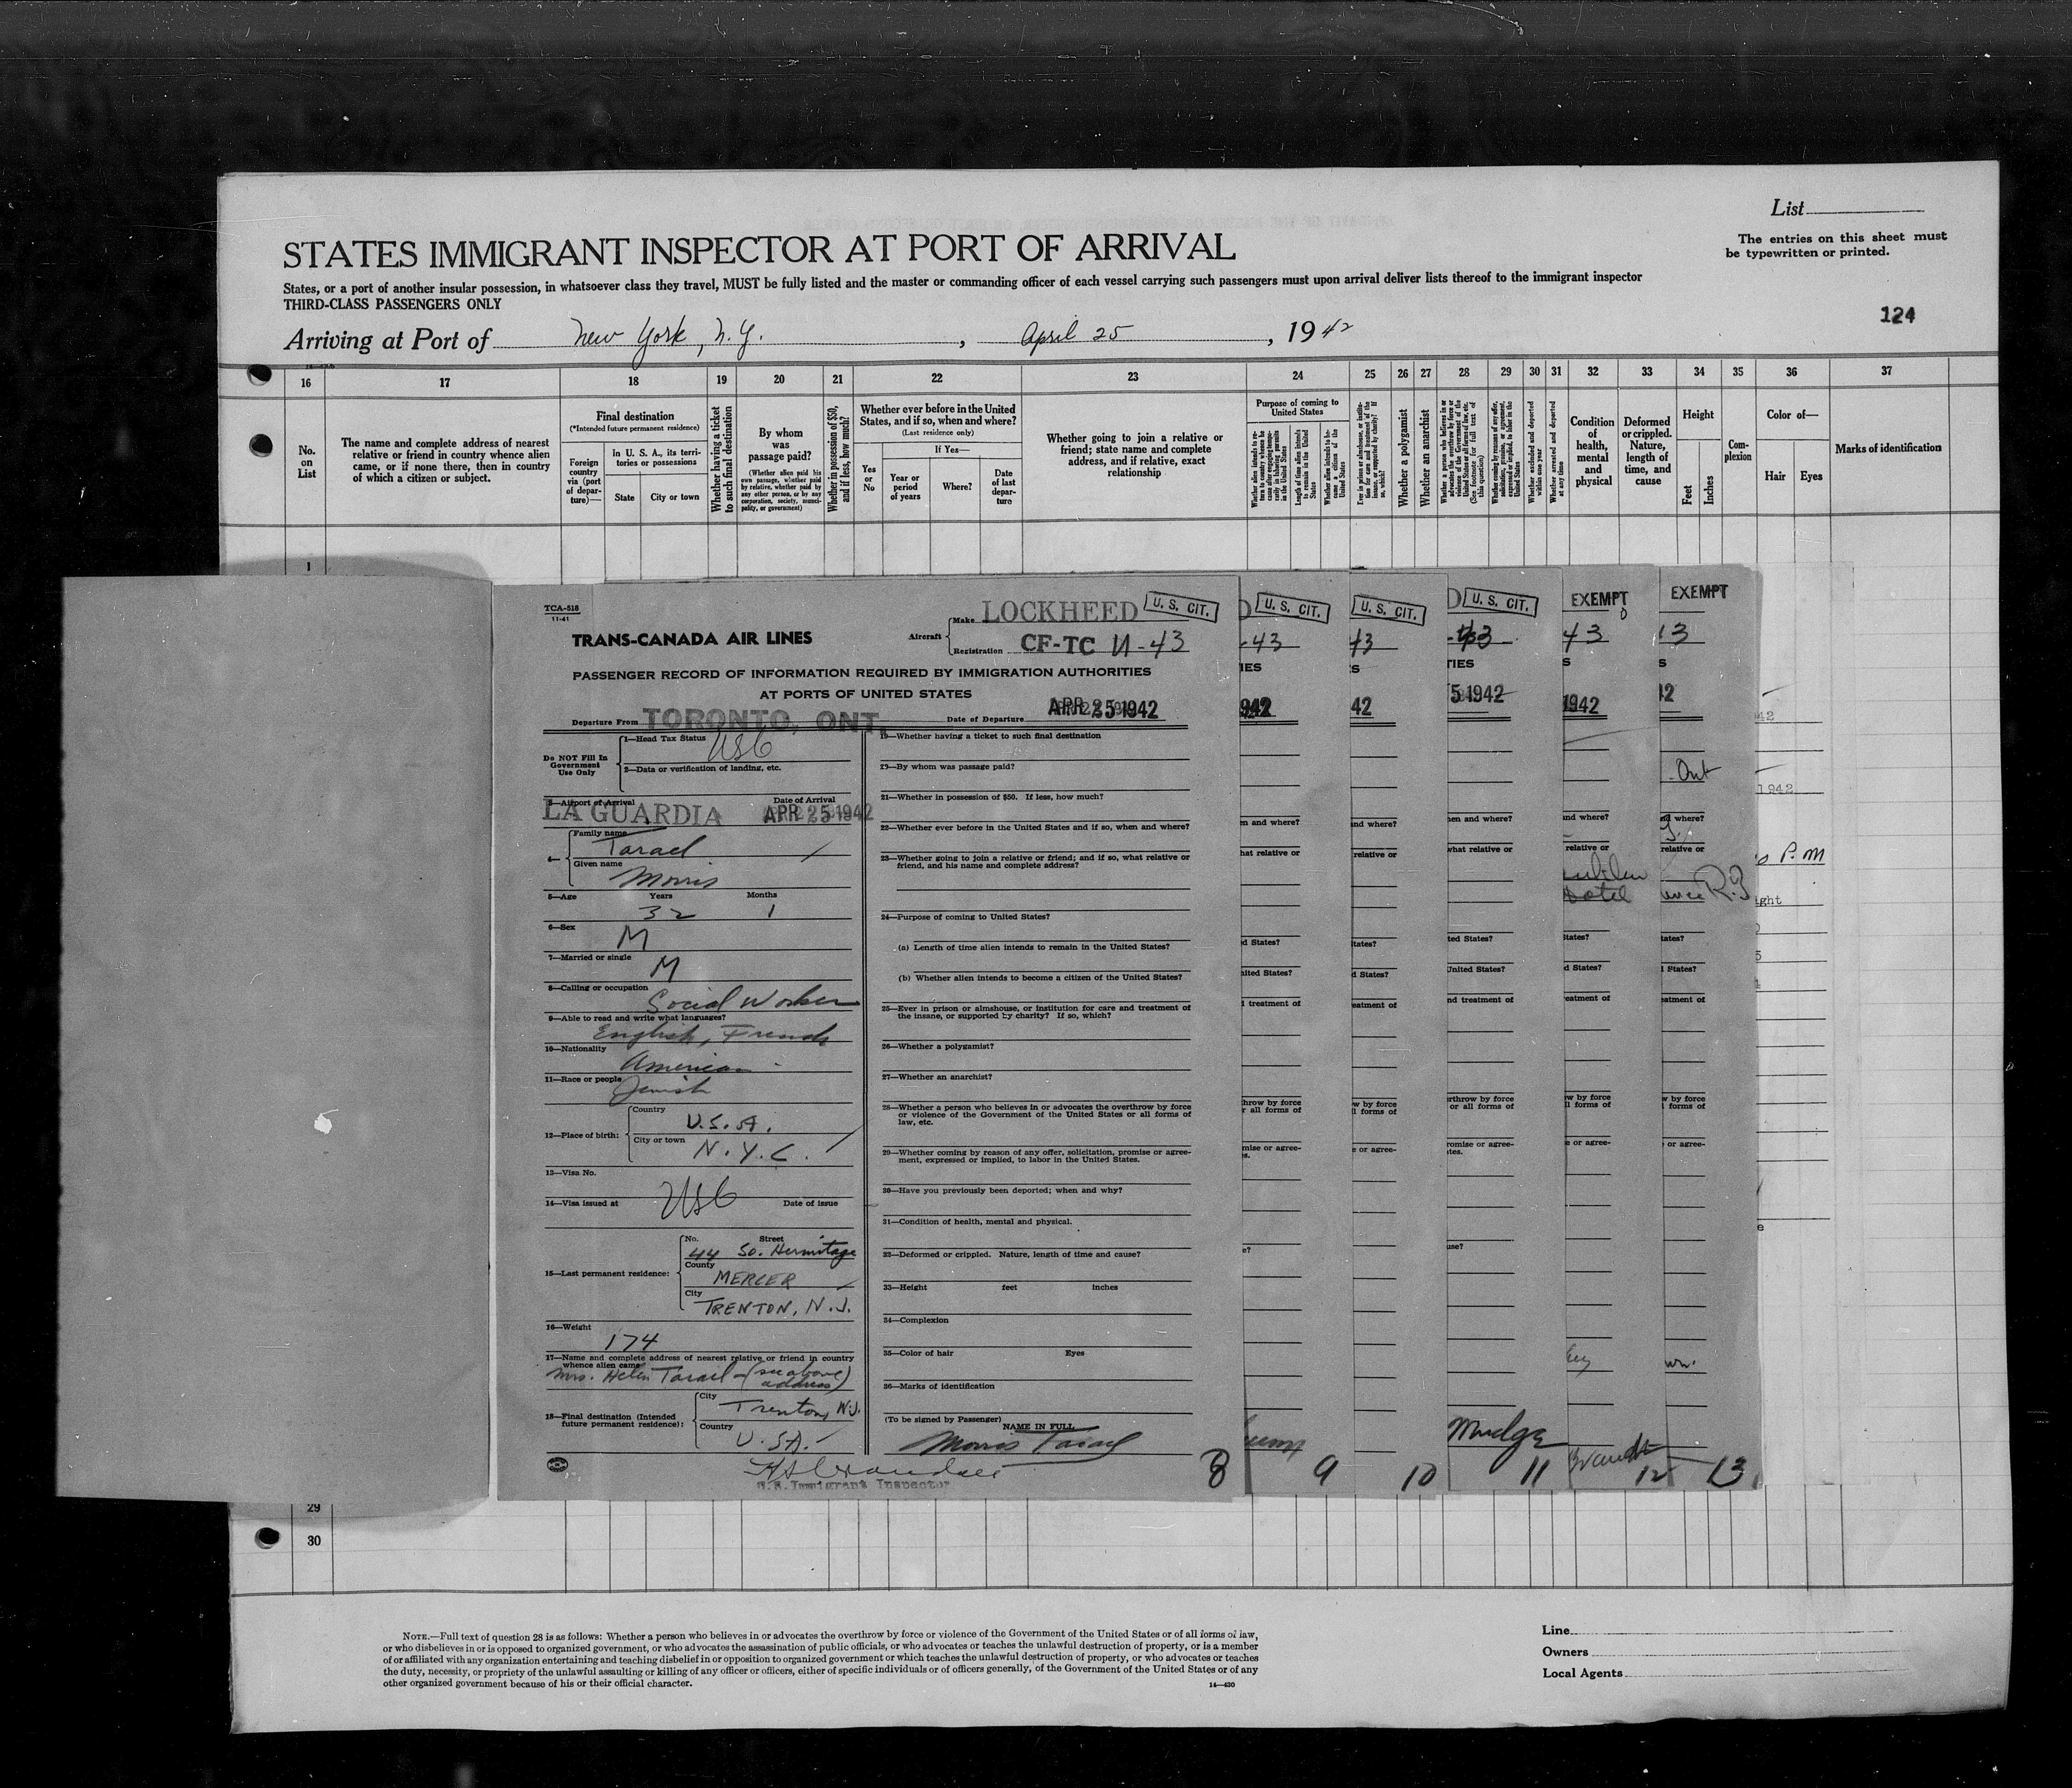 List
The entries on this sheet must
be typewritten or printed.
STATES IMMIGRANT INSPECTOR AT PORT OF ARRIVAL
States, or a port of another insular possession, in whatsoever class they travel, MUST be fully listed and the master or commanding officer of each vessel carrying such passengers must upon arrival deliver lists thereof to the immigrant inspector
THIRD-CLASS PASSENGERS ONLY
124
Arriving at Port of New York, N.Y., April 25, 1942
16 17 18 19 20 21 22 23 24 25 26 27 28 29 30 31 32 33 34 35 36 37
No.
on
List
The name and complete address of nearest
relative or friend in country whence alien
came, or if none there, then in country
of which a citizen or subject.
Final destination
(*Intended future permanent residence)
Foreign
country
via (port
of depar-
ture)—
In U. S. A., its terri-
tories or possessions
State
City or town
Whether having a ticket
to such final destination
By whom
was
passage paid?
(Whether alien paid his
own passage, whether paid
by relative, whether paid by
any other person, or by any
corporation, society, munici-
pality, or government)
Whether in possession of $50,
and if less, how much?
Whether ever before in the United
States, and if so, when and where?
(Last residence only)
Yes
or
No
If Yes—
Year or
period
of years
Where?
Date
of last
depar-
ture
Whether going to join a relative or
friend; state name and complete
address, and if relative, exact
relationship
Purpose of coming to
United States
Length of time alien intends
to remain in the United
States
Whether a polygamist
Whether an anarchist
Whether arrested and deported
at any time
Condition
of
health,
mental
and
physical
Deformed
or crippled.
Nature,
length of
time, and
cause
Height
Feet
Inches
Com-
plexion
Color of—
Hair
Eyes
Marks of identification
1
TCA-518
11-41
TRANS-CANADA AIR LINES
Aircraft
Make LOCKHEED
U. S. CIT.
Registration CF-TC N-43
PASSENGER RECORD OF INFORMATION REQUIRED BY IMMIGRATION AUTHORITIES
AT PORTS OF UNITED STATES
Departure From TORONTO, ONT.
Date of Departure APR 25 1942
Do NOT Fill In
Government
Use Only
1—Head Tax Status USC
2—Data or verification of landing, etc.
3—Airport of Arrival
Date of Arrival
LA GUARDIA APR 25 1942
4—
Family name
Tarael
Given name
Morris
5—Age Years Months
32 1
6—Sex
M
7—Married or single
M
8—Calling or occupation
Social Worker
9—Able to read and write what languages?
English, French
10—Nationality
American
11—Race or people
Jewish
12—Place of birth:
Country
U.S.A.
City or town
N.Y.C.
13—Visa No.
14—Visa issued at USC Date of issue
15—Last permanent residence:
No. Street
44 So. Hermitage
County
MERCER
City
TRENTON, N.J.
16—Weight
174
17—Name and complete address of nearest relative or friend in country
whence alien came
Mrs. Helen Tarael - (see above
address)
18—Final destination (Intended
future permanent residence):
City
Trenton, N.J.
Country
U.S.A.
19—Whether having a ticket to such final destination
20—By whom was passage paid?
21—Whether in possession of $50. If less, how much?
22—Whether ever before in the United States and if so, when and where?
23—Whether going to join a relative or friend; and if so, what relative or
friend, and his name and complete address?
24—Purpose of coming to United States?
(a) Length of time alien intends to remain in the United States?
(b) Whether alien intends to become a citizen of the United States?
25—Ever in prison or almshouse, or institution for care and treatment of
the insane, or supported by charity? If so, which?
26—Whether a polygamist?
27—Whether an anarchist?
28—Whether a person who believes in or advocates the overthrow by force
or violence of the Government of the United States or all forms of
law, etc.
29—Whether coming by reason of any offer, solicitation, promise or agree-
ment, expressed or implied, to labor in the United States.
30—Have you previously been deported; when and why?
31—Condition of health, mental and physical.
32—Deformed or crippled. Nature, length of time and cause?
33—Height feet inches
34—Complexion
35—Color of hair Eyes
36—Marks of identification
(To be signed by Passenger)
NAME IN FULL
Morris Tarael
U.S. Immigrant Inspector
8
U. S. CIT.
-43
1942
9
U. S. CIT.
43
42
10
U. S. CIT.
5 1942
Mudge
11
EXEMPT
43
1942
Hotel
Brandt
12
EXEMPT
13
42
Ont
R.I
13
1942
P.M
29
30
NOTE.—Full text of question 28 is as follows: Whether a person who believes in or advocates the overthrow by force or violence of the Government of the United States or of all forms of law,
or who disbelieves in or is opposed to organized government, or who advocates the assassination of public officials, or who advocates or teaches the unlawful destruction of property, or is a member
of or affiliated with any organization entertaining and teaching disbelief in or opposition to organized government or which teaches the unlawful destruction of property, or who advocates or teaches
the duty, necessity, or propriety of the unlawful assaulting or killing of any officer or officers, either of specific individuals or of officers generally, of the Government of the United States or of any
other organized government because of his or their official character.
14—430
Line
Owners
Local Agents